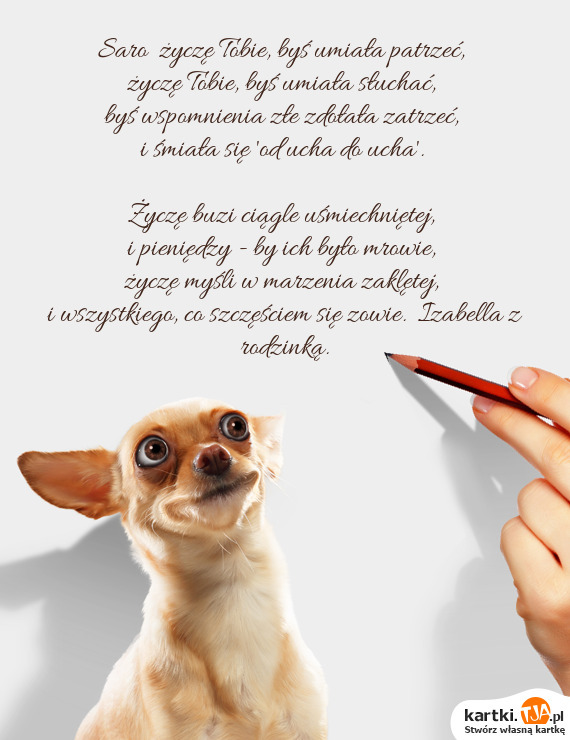 Saro życzę Tobie, byś umiała patrzeć,
życzę Tobie, byś umiała słuchać,
byś wspomnienia złe zdołała zatrzeć,
i śmiała się 'od ucha do ucha'.
Życzę buzi ciągle uśmiechniętej,
i pieniędzy - by ich było mrowie,
życzę myśli w marzenia zaklętej,
i wszystkiego, co szczęściem się zowie. Izabella z
rodzinką.
kartki.TJA.pl
Stwórz własną kartkę